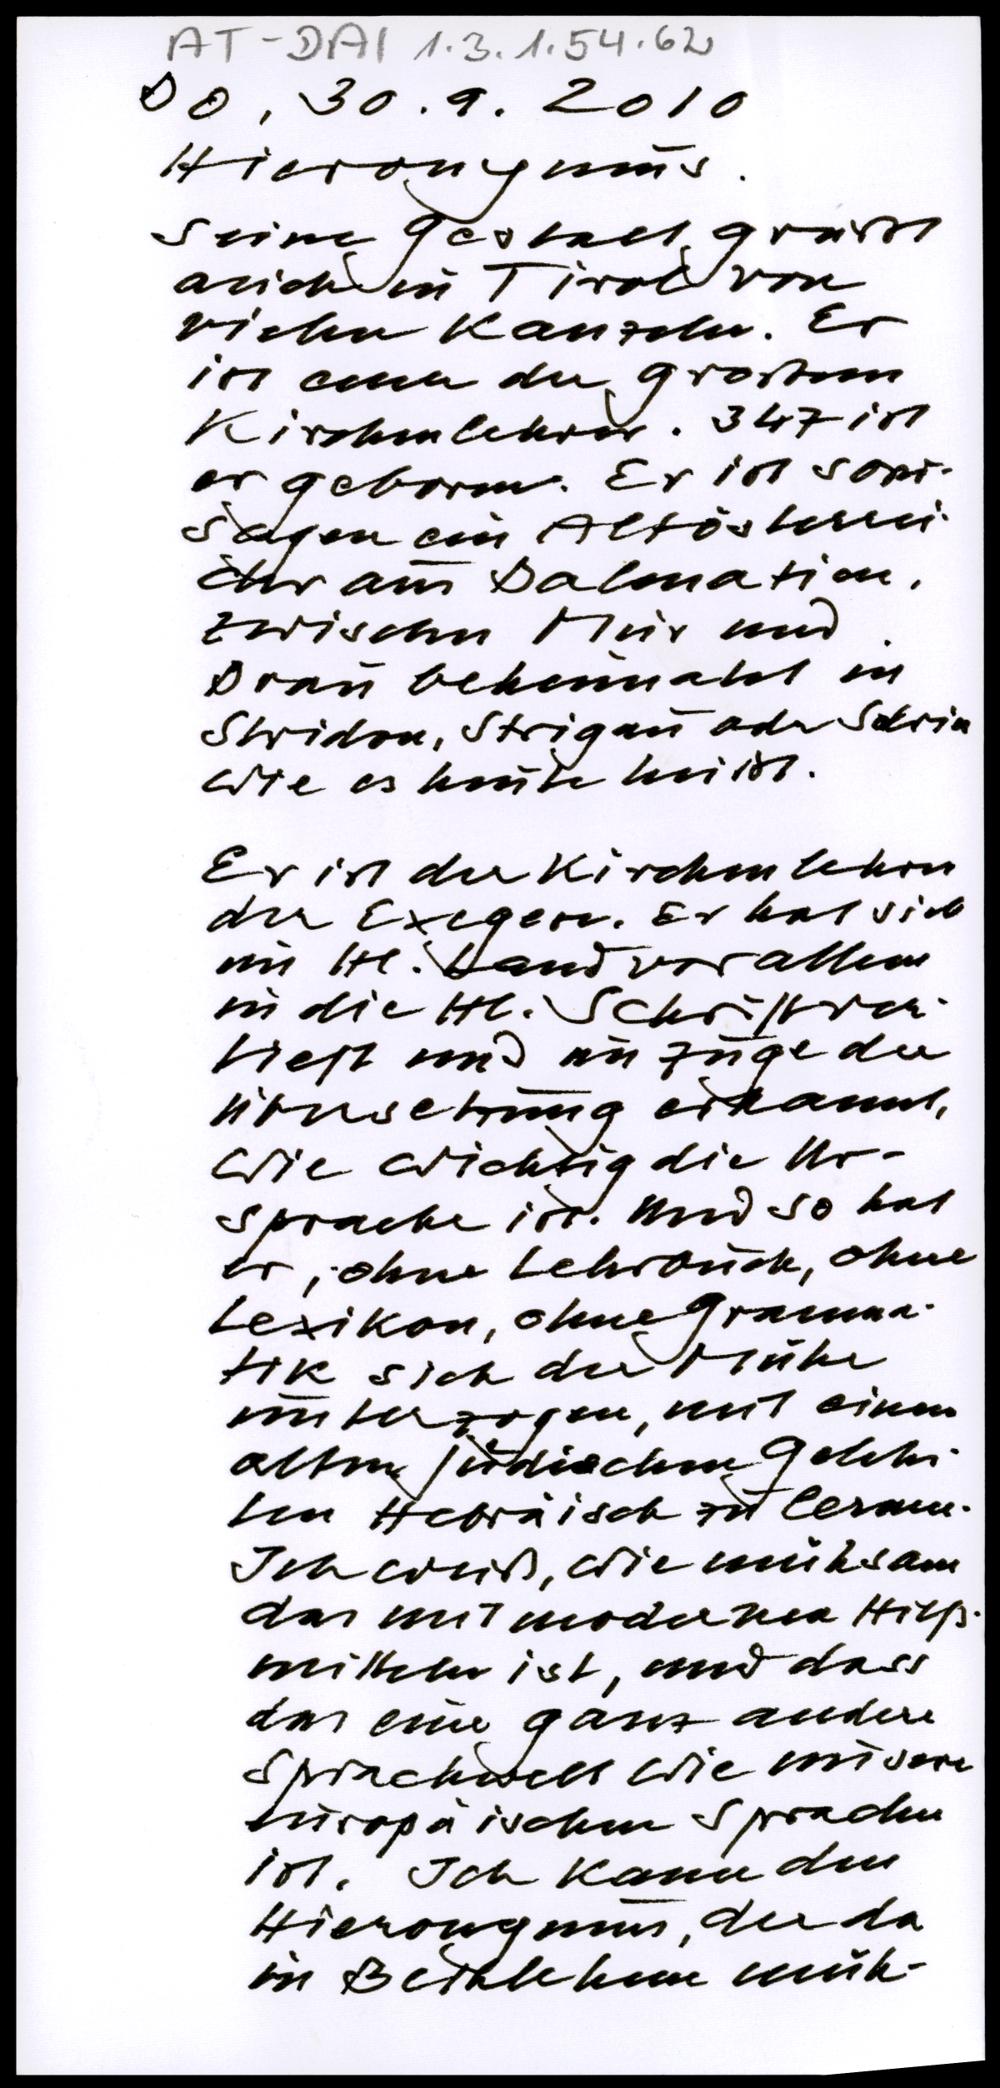 AT-DAI 1.3.1.54.62
Do, 30.9.2010
Hieronymus.
Seine Gestalt grüßt
auch in Tirol von
vielen Kanzeln. Er
ist einer der großten
Kirchenlehrer. 347 ist
er geboren. Er ist sozu-
sagen ein Altösterrei-
cher aus Dalmatien,
zwischen Mur und
Drau beheimatet in
Stridon, Strigau oder
wie es heute heißt.
Er ist der Kirchenlehrer
der Exegese. Er hat sich
im Hl. Land vor allem
in die Hl. Schrift ver-
tieft und im Zuge der
Übersetzung erkannt,
wie wichtig die Ur-
sprache ist. Und so hat
er, ohne Lehrbuch, ohne
Lexikon, ohne Gramma-
tik sich der Mühe
unterzogen, mit einem
alten jüdischen Gelehr-
ten Hebräisch zu lernen.
Ich weiß, wie mühsam
das mit modernen Hilfs-
mitteln ist, und dass
das eine ganz andere
Sprachwelt wie unsere
europäischen Sprachen
ist. Ich kann den
Hieronymus, der da
in Bethlehem müh-